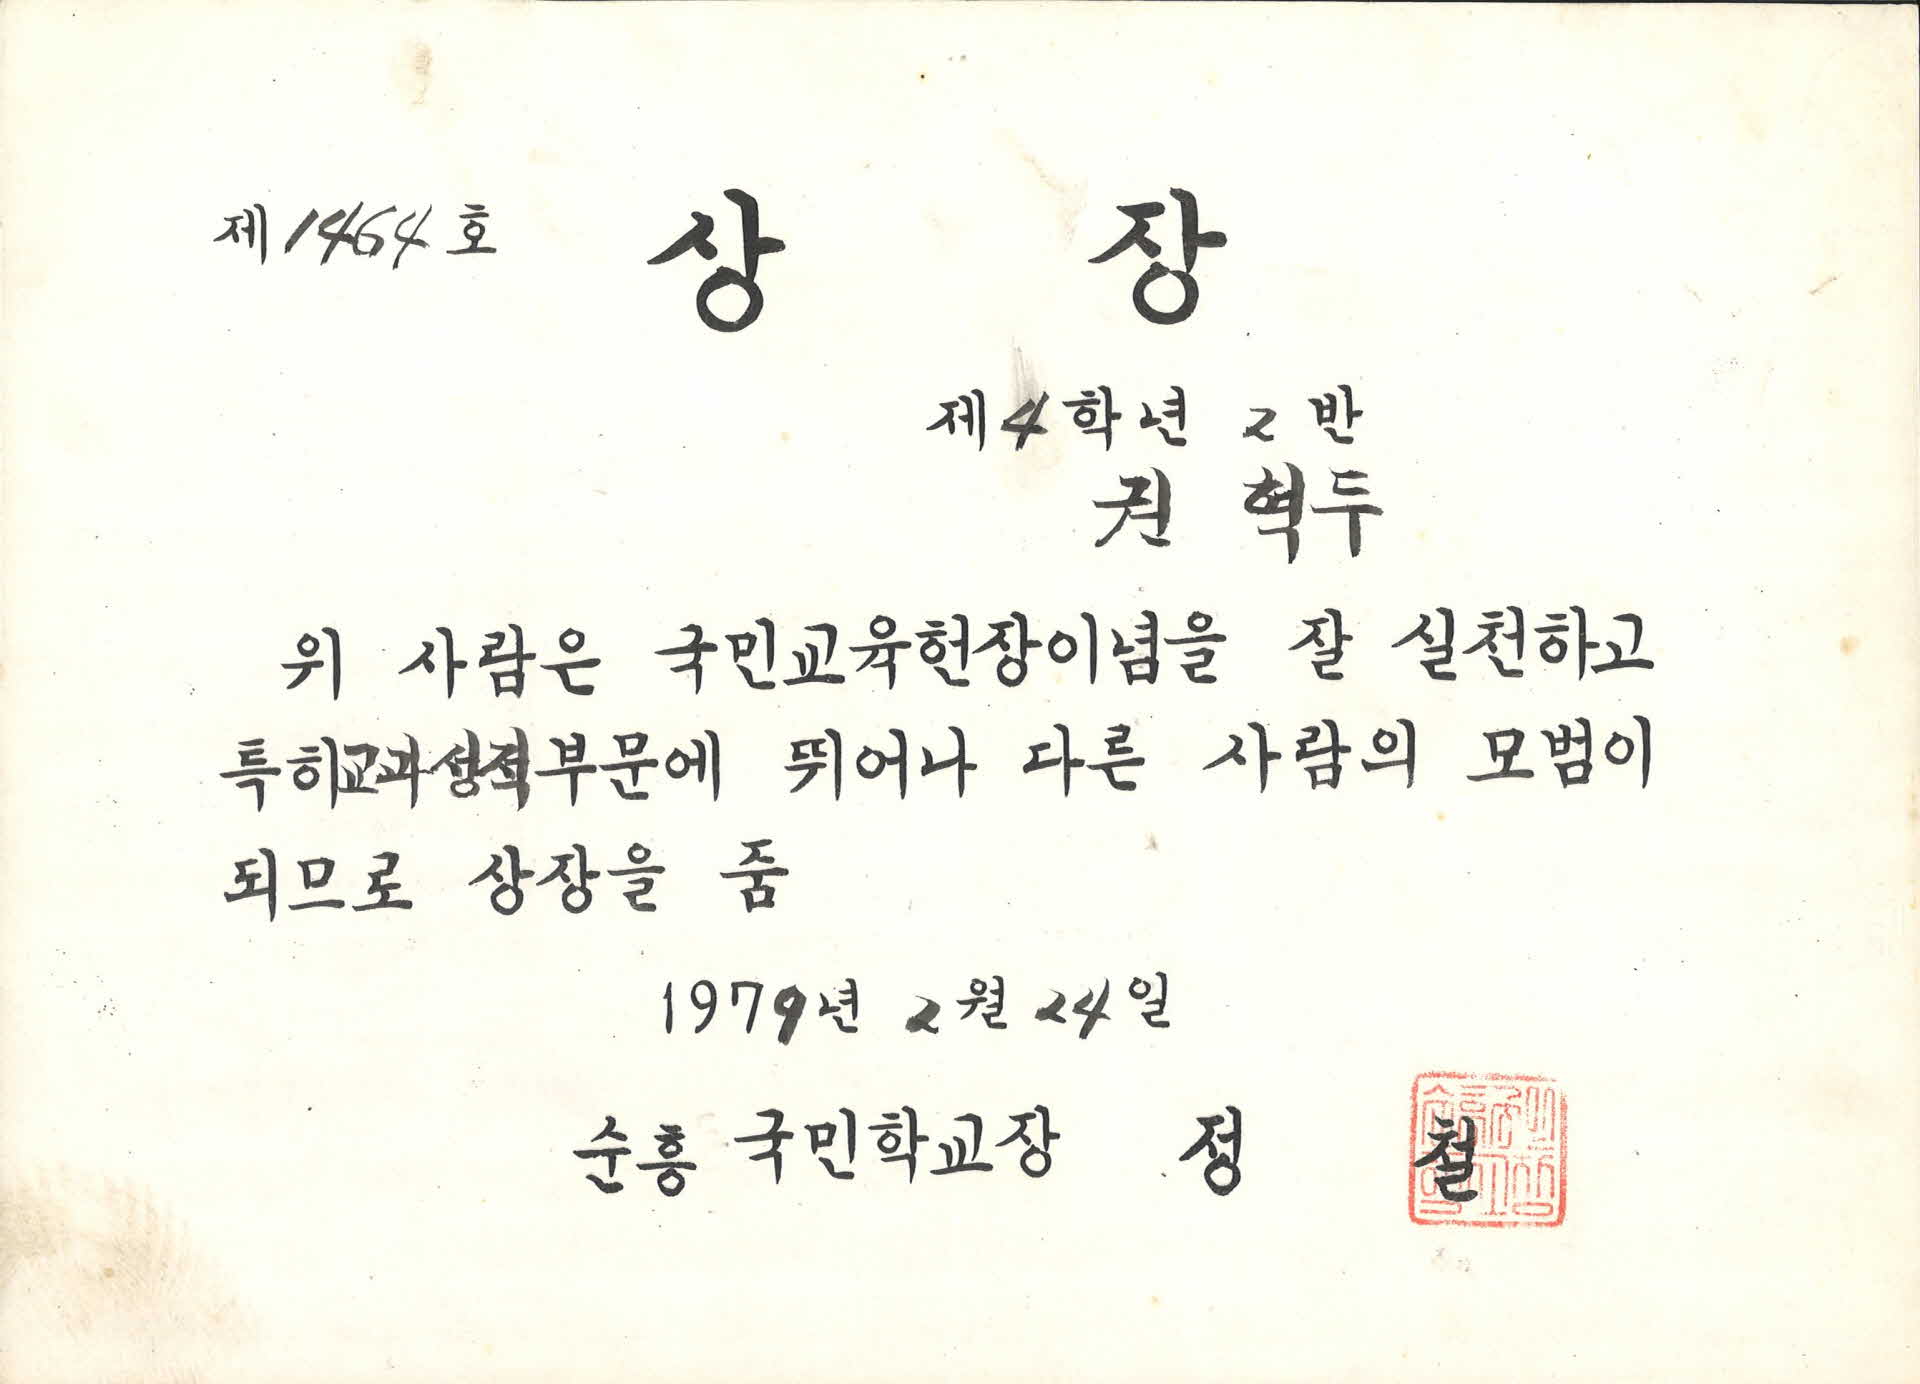 제1464호 상 장
제4학년 2반
권 혁두
위 사람은 국민교육헌장이념을 잘 실천하고
특히교과성적부문에 뛰어나 다른 사람의 모범이
되므로 상장을 줌
1979년 2월 24일
순흥 국민학교장 정 철